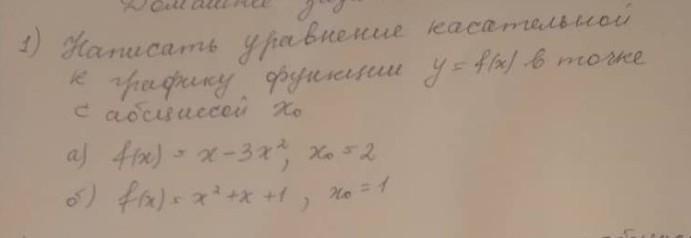 Домашнее
1) Написать уравнение касательной
к графику функции y = f(x) в точке
с абсциссой x₀
а) f(x) = x - 3x², x₀ = 2
б) f(x) = x² + x + 1, x₀ = 1